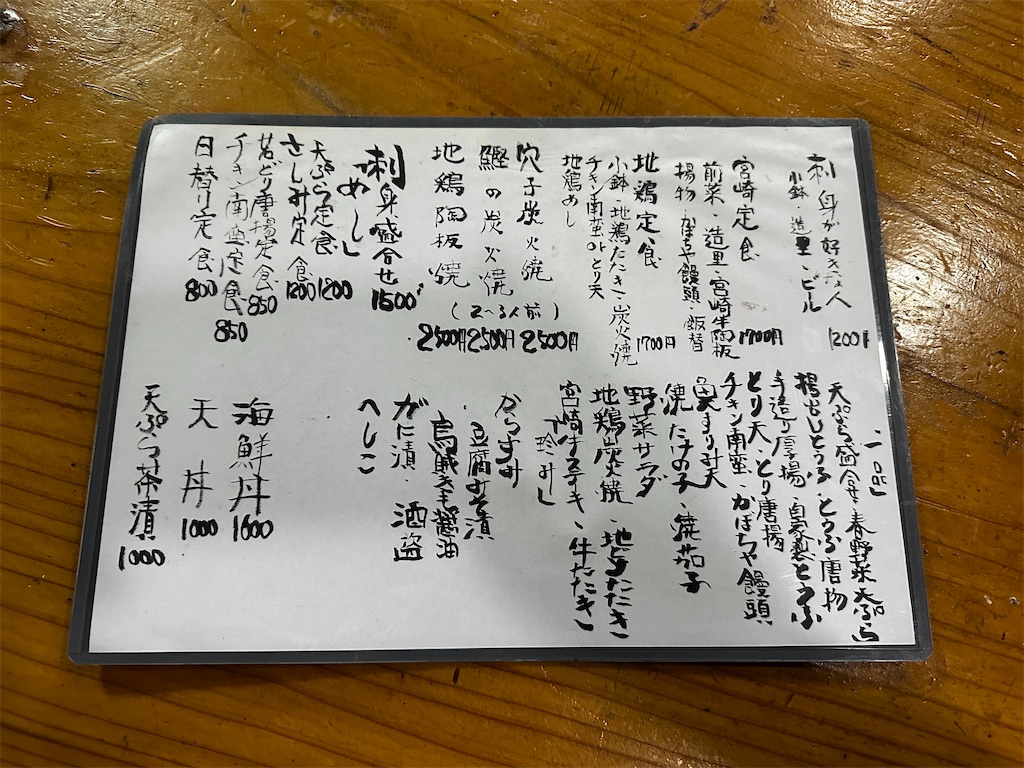 刺身が好きな人 1200円
小鉢・造里・ビル
宮崎定食 1700円
前菜・造里・宮崎牛陶板
揚物・かぼちゃ饅頭・飯替
地鶏定食 1700円
小鉢・地鶏たたき・炭火焼
チキン南蛮orとり天
地鶏めし
穴子炭火焼 2500円
鰹の炭火焼 (2~3人前) 2500円
地鶏陶板焼 2500円
刺身盛合せ 1500
めし
天ぷら定食 1200
さしみ定食 1200
若どり唐揚定食 850
チキン南蛮定食 850
日替り定食 800
一品
天ぷら盛合せ・春野菜天ぷら
揚出しとうふ・とうふ唐物
手造り厚揚・自家製とうふ
とり天・とり唐揚
チキン南蛮・かぼちゃ饅頭
魚すり身天
焼たけの子・焼茄子
野菜サラダ
地鶏炭火焼・地どりたたき
宮崎牛ステキ・牛たたき
珍み
からすみ
豆腐みそ漬
烏賊
醤油
がに漬・酒盗
へしこ
海鮮丼 1600
天丼 1000
天ぷら茶漬 1000